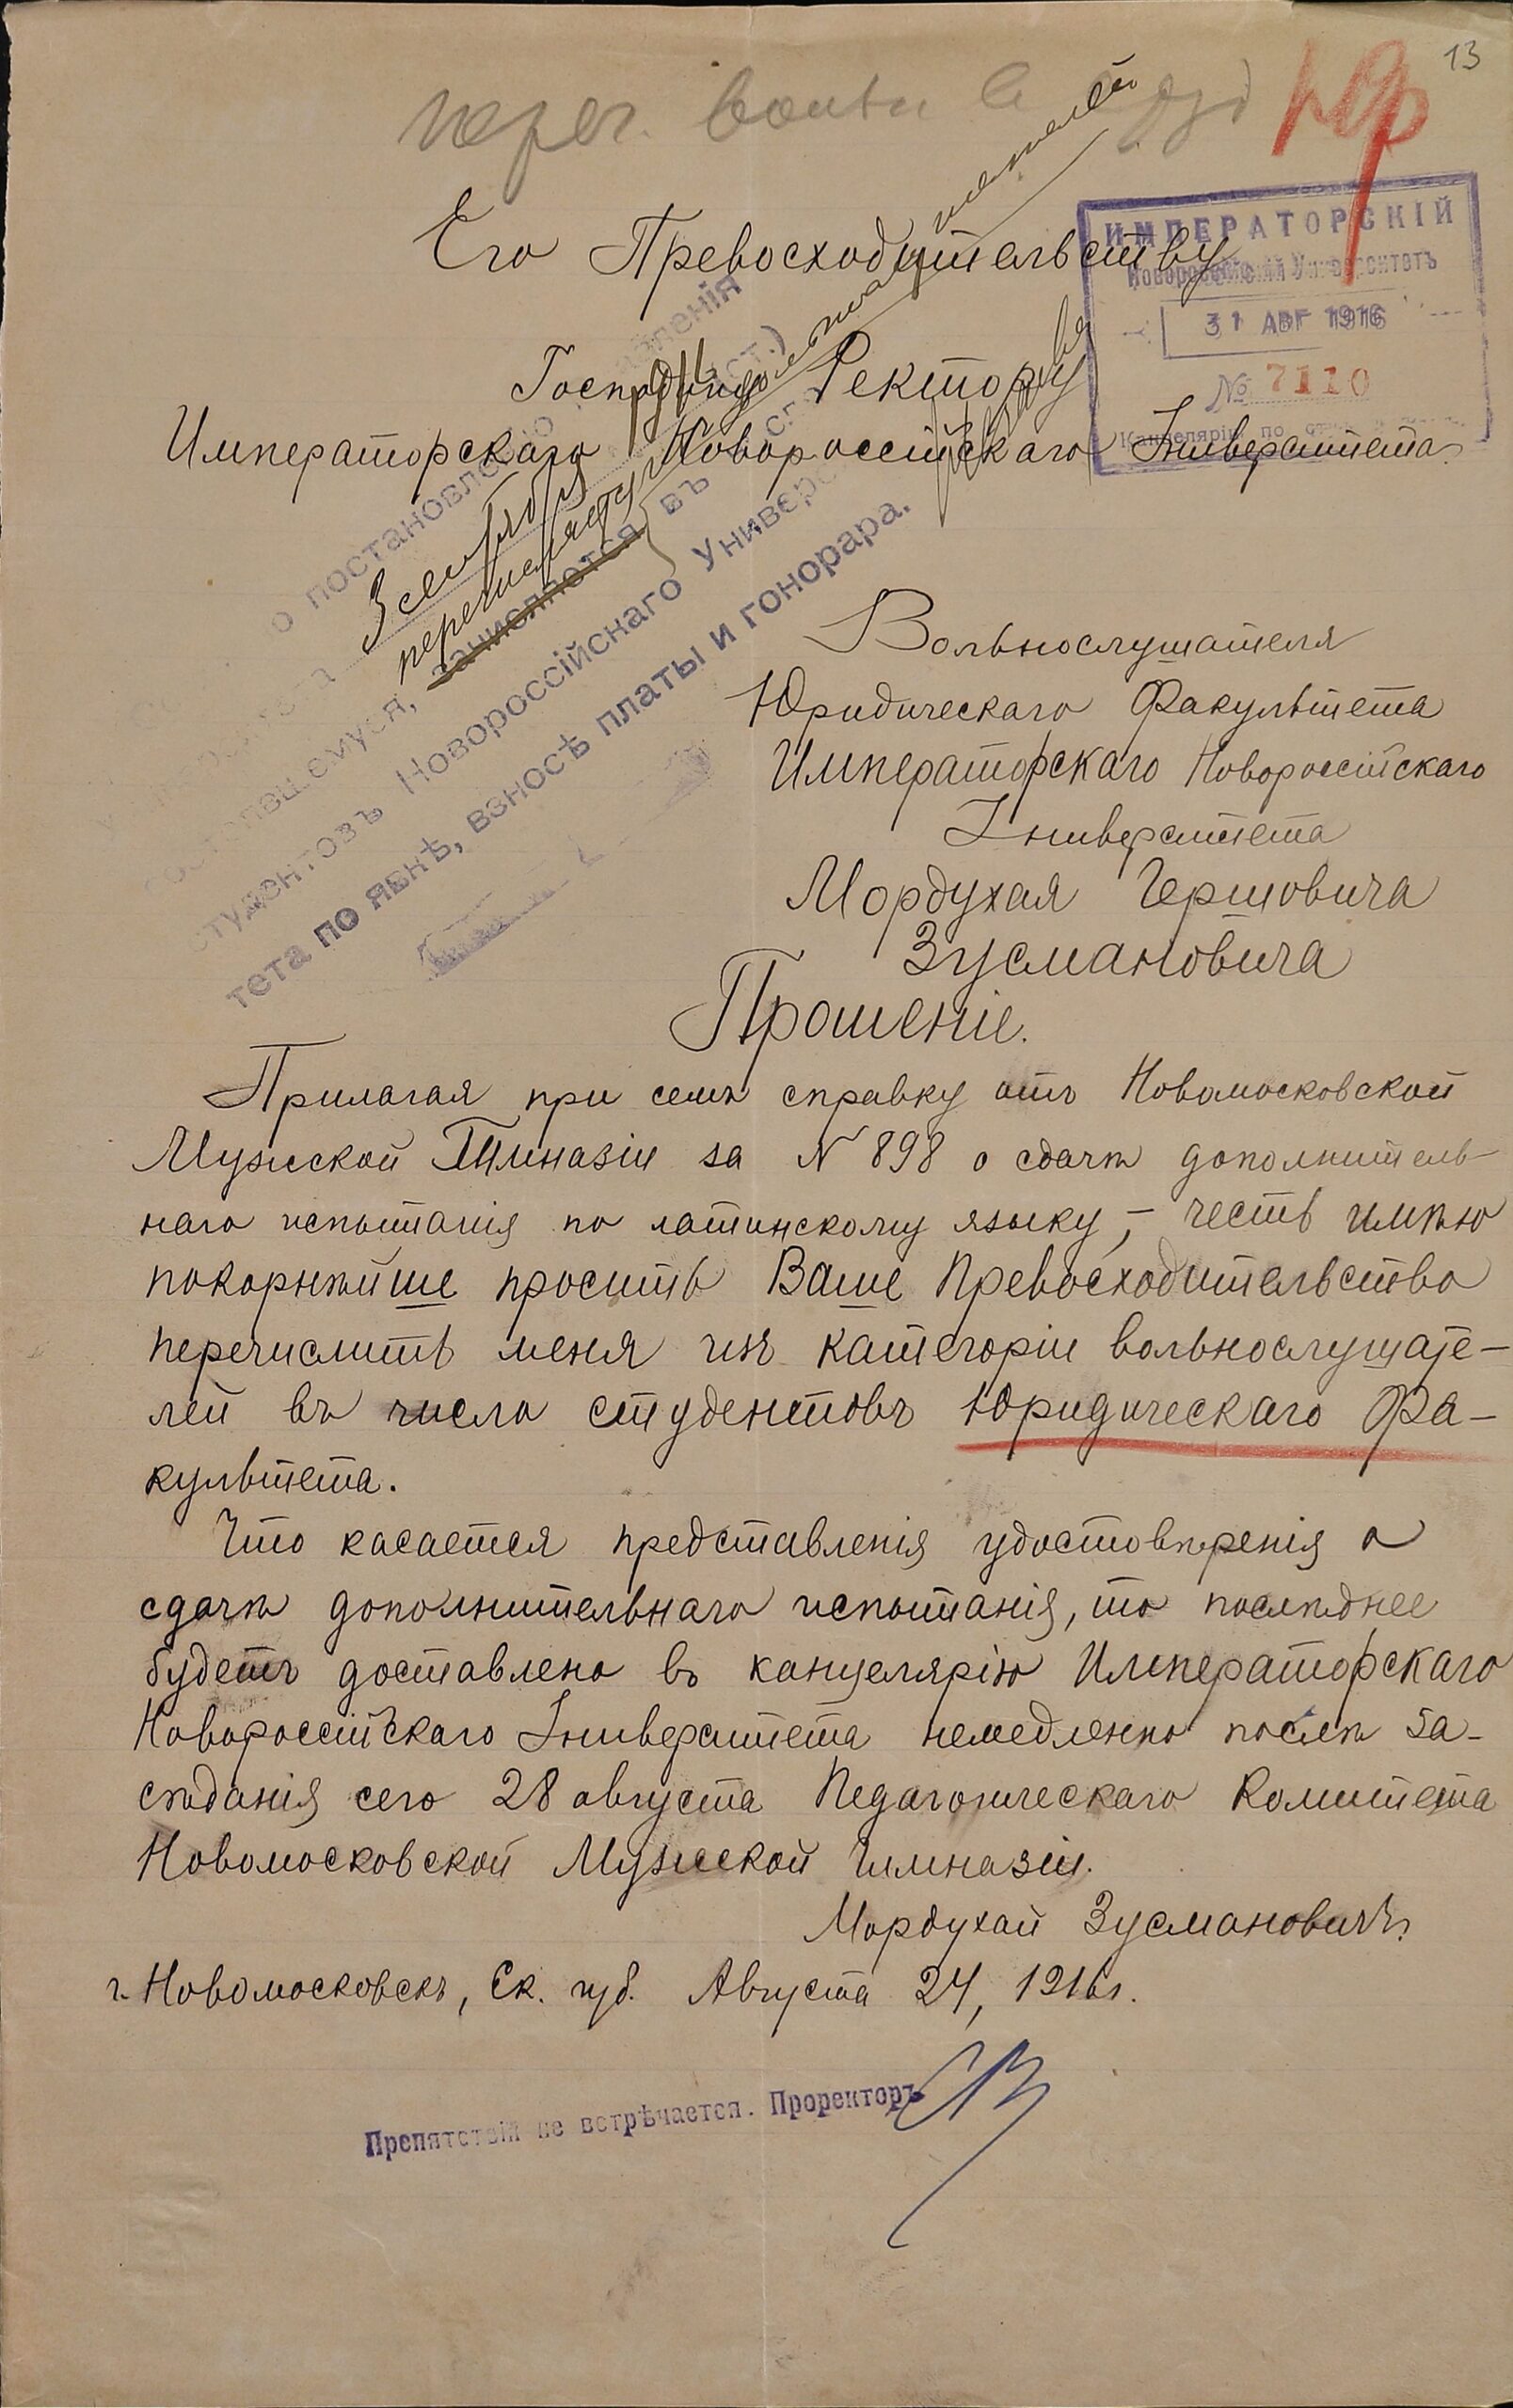 13
Его Превосходительству
Господину Ректору
Императорскаго Новороссійскаго Университета.
ИМПЕРАТОРСКІЙ
Новороссійскій Университетъ
31 АВГ 1916
№ 7110
постановленію
3 сентября
зачисляется въ
студентовъ Новороссійскаго Универс
тета по явкѣ, взносѣ платы и гонорара.
Вольнослушателя
Юридическаго Факультета
Императорскаго Новороссійскаго
Университета
Мордухая Гершовича
Зусмановича
Прошеніе.
Прилагая при семъ справку отъ Новомосковской
Мужской Гимназіи за N 898 о сдачѣ дополнитель-
наго испытанія по латинскому языку, – честь имѣю
покорнѣйше просить Ваше Превосходительство
перечислить меня изъ категоріи вольнослушате-
лей въ число студентовъ Юридическаго Фа-
культета.
Что касается представленія удостовѣренія о
сдачѣ дополнительнаго испытанія, то послѣднее
будетъ доставлено въ канцелярію Императорскаго
Новороссійскаго Университета немедленно послѣ за-
сѣданія сего 28 августа Педагогическаго Комитета
Новомосковской Мужской Гимназіи.
Мордухай Зусмановичъ.
г. Новомосковскъ, Ек. губ. Августа 24, 1916 г.
Препятствій не встрѣчается. Проректоръ